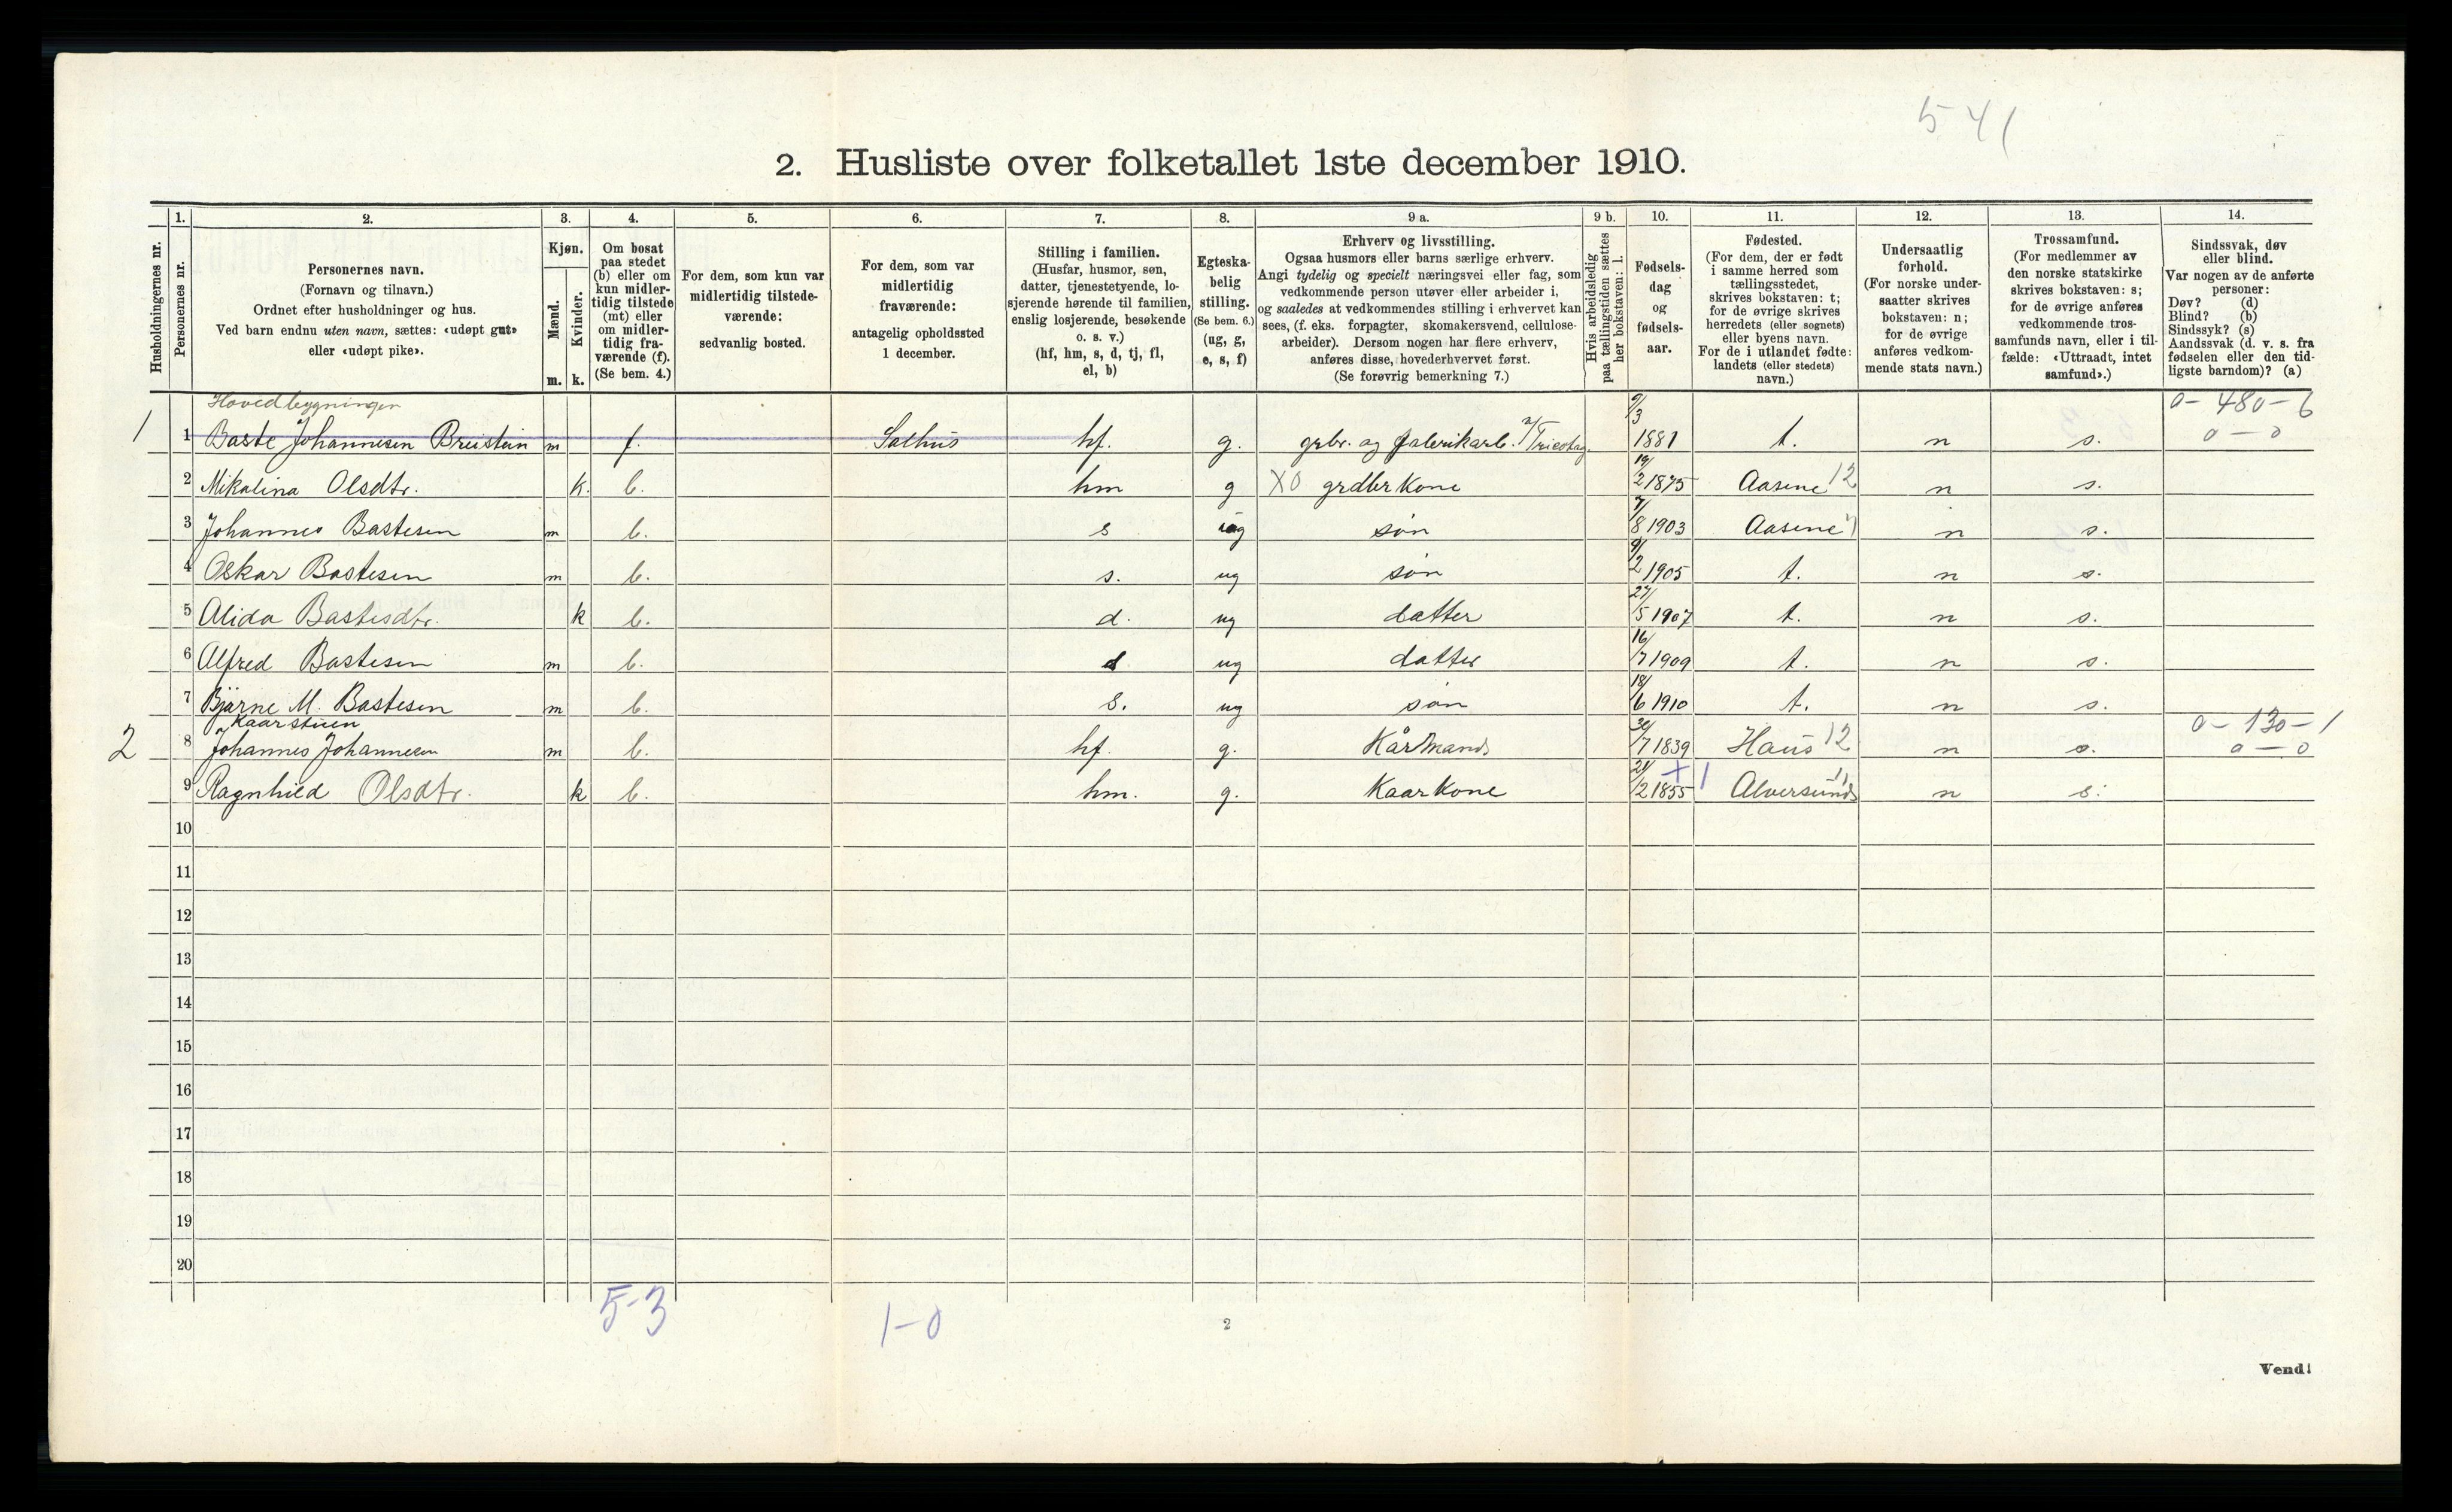 541
2. Husliste over folketallet 1ste december 1910.
Husholdningernes nr.
1. Personernes nr.
2. Personernes navn. (Fornavn og tilnavn.) Ordnet efter husholdninger og hus. Ved barn endnu uten navn, sættes: «udøpt gut» eller «udøpt pike».
3. Kjøn. Mænd. m. Kvinder. k.
4. Om bosat paa stedet (b) eller om kun midler-tidig tilstede (mt) eller om midler-tidig fra-værende (f). (Se bem. 4.)
5. For dem, som kun var midlertidig tilstede-værende: sedvanlig bosted.
6. For dem, som var midlertidig fraværende: antagelig opholdssted 1 december.
7. Stilling i familien. (Husfar, husmor, søn, datter, tjenestetyende, lo-sjerende hørende til familien, enslig losjerende, besøkende o. s. v.) (hf, hm, s, d, tj, fl, el, b)
8. Egteska-belig stilling. (Se bem. 6.) (ug, g, e, s, f)
9 a. Erhverv og livsstilling. Ogsaa husmors eller barns særlige erhverv. Angi tydelig og specielt næringsvei eller fag, som vedkommende person utøver eller arbeider i, og saaledes at vedkommendes stilling i erhvervet kan sees, (f. eks. forpagter, skomakersvend, cellulose-arbeider). Dersom nogen har flere erhverv, anføres disse, hovederhvervet først. (Se forøvrig bemerkning 7.)
9 b. Hvis arbeidsledig paa tællingstiden sættes her bokstaven: l.
10. Fødsels-dag og fødsels-aar.
11. Fødested. (For dem, der er født i samme herred som tællingsstedet, skrives bokstaven: t; for de øvrige skrives herredets (eller sognets) eller byens navn. For de i utlandet fødte: landets (eller stedets) navn.)
12. Undersaatlig forhold. (For norske under-saatter skrives bokstaven: n; for de øvrige anføres vedkom-mende stats navn.)
13. Trossamfund. (For medlemmer av den norske statskirke skrives bokstaven: s; for de øvrige anføres vedkommende tros-samfunds navn, eller i til-fælde: «Uttraadt, intet samfund».)
14. Sindssvak, døv eller blind. Var nogen av de anførte personer: Døv? (d) Blind? (b) Sindssyk? (s) Aandssvak (d. v. s. fra fødselen eller den tid-ligste barndom)? (a)
Hovedbygningen 0-480-6
1 1 Baste Johannesen Breistein m f. Salhus hf. g. grbr. og fabrikarb. Tricotag. 9/3 1881 t. n s. 0-0
2 Mikalina Olsdtr. k. b. hm g X0 grdbr kone 19/2 1875 Aasene 12 n s.
3 Johannes Bastesen m b. s ug søn 7/8 1903 Aasene n s.
4 Oskar Bastesen m b. s. ug søn 9/2 1905 t. n s.
5 Alida Bastesdtr. k b. d. ug datter 27/5 1907 t. n s.
6 Alfred Bastesen m b. d ug datter 16/7 1909 t. n s.
7 Bjarne M. Bastesen m b. s. ug søn 18/6 1910 t. n s.
Kaarstuen 0-130-1
2 8 Johannes Johannesen m b. hf. g. Kårmand 30/7 1839 Haus 12 n s. 0-0
9 Ragnhild Olsdtr. k b. hm. g. Kaarkone 21/12 1855 Alversund n s.
10
11
12
13
14
15
16
17
18
19
20
5-3 1-0
2
Vend!